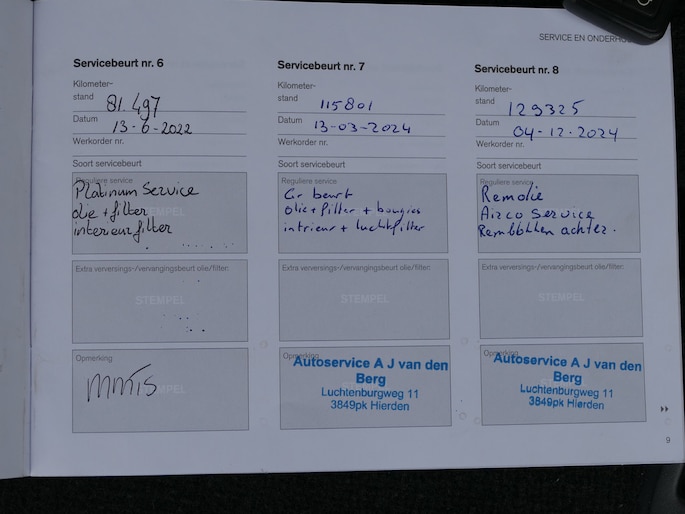 SERVICE EN ONDERHO
Servicebeurt nr. 6
Kilometer-
stand 81.497
Datum 13-6-2022
Werkorder nr.
Soort servicebeurt
Reguliere service
Platinum Service
olie + filter
interieurfilter
Extra verversings-/vervangingsbeurt olie/filter:
STEMPEL
Opmerking
STEMPEL
Servicebeurt nr. 7
Kilometer-
stand 115801
Datum 13-03-2024
Werkorder nr.
Soort servicebeurt
Reguliere service
Gr beurt
olie + filter + bougies
intrieur + luchtfilter
Extra verversings-/vervangingsbeurt olie/filter:
STEMPEL
Opmerking
Autoservice A J van den
Berg
Luchtenburgweg 11
3849pk Hierden
Servicebeurt nr. 8
Kilometer-
stand 129325
Datum 04-12-2024
Werkorder nr.
Soort servicebeurt
Reguliere service
Remolie
Airco Service
achter.
Extra verversings-/vervangingsbeurt olie/filter:
STEMPEL
Opmerking
Autoservice A J van den
Berg
Luchtenburgweg 11
3849pk Hierden
9